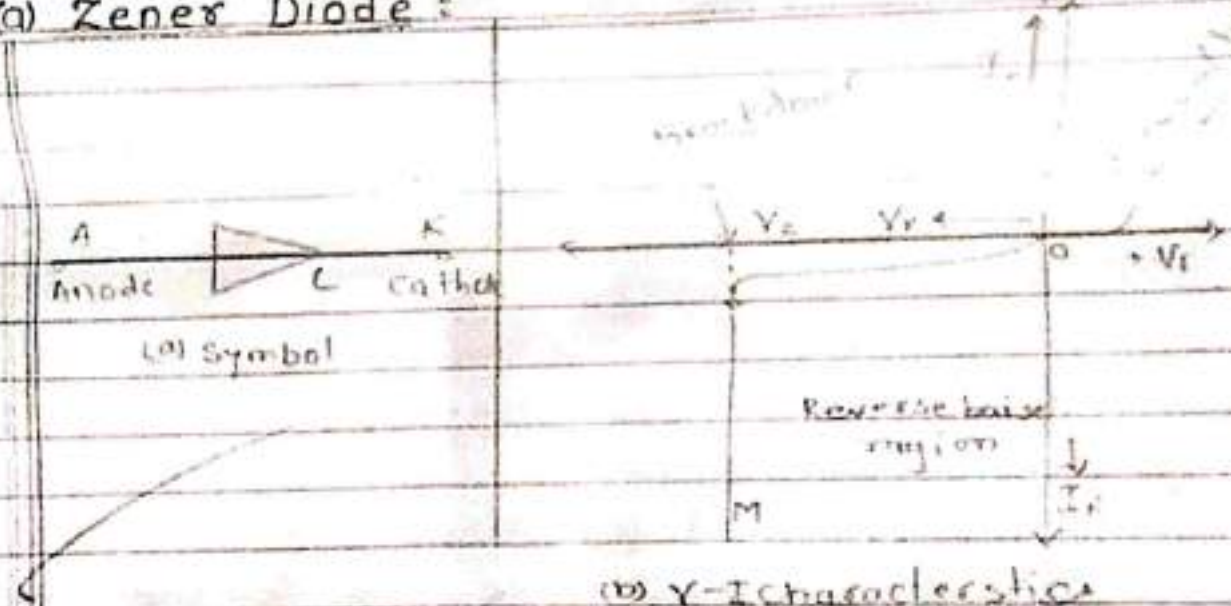 (a) Zener Diode :
A K
Anode L Cathod
(a) Symbol
Vz Vr O + Vf
Reverse baise
region
M Ir
(b) V-I characterstics